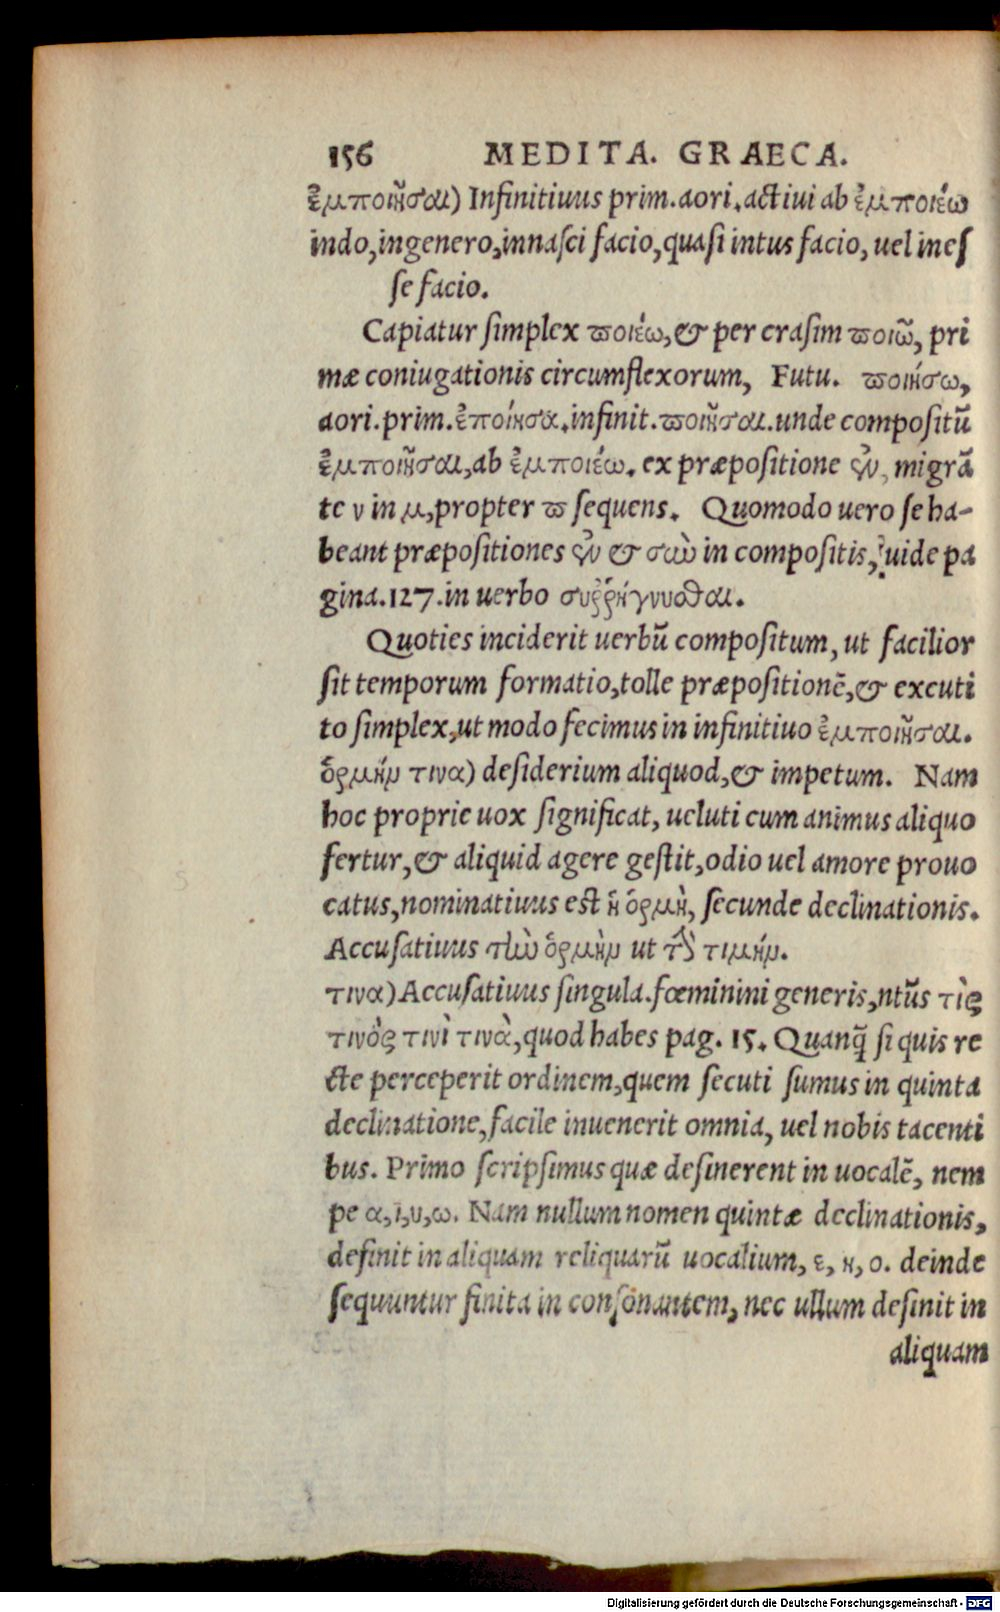 156 MEDITA. GRAECA.
ἐμποιῆσαι) Infinitiuus prim.aori.actiui ab ἐμποιέω
indo,ingenero,innasci facio,quasi intus facio, uel ines
se facio.
Capiatur simplex ϖοιέω,& per crasim ϖοιῶ, pri
mæ coniugationis circumflexorum, Futu. ϖοιήσω,
aori.prim.ἐποίησα.infinit.ϖοιῆσαι.unde compositū
ἐμποιῆσαι,ab ἐμποιέω. ex præpositione ἐν, migrā
te ν in μ,propter ϖ sequens. Quomodo uero se ha-
beant præpositiones ἐν & σὺν in compositis, uide pa
gina.127.in uerbo συῤῥήγνυσθαι.
Quoties inciderit uerbū compositum, ut facilior
sit temporum formatio,tolle præpositionē,& excuti
to simplex,ut modo fecimus in infinitiuo ἐμποιῆσαι.
ὁρμήν τινα) desiderium aliquod,& impetum. Nam
hoc proprie uox significat, ueluti cum animus aliquo
fertur,& aliquid agere gestit,odio uel amore prouo
catus,nominatiuus est ἡ ὁρμὴ, secunde declinationis.
Accusatiuus τὴν ὁρμὴν ut τὴν τιμήν.
τινα) Accusatiuus singula.fœminini generis,ntūs τὶς
τινὸς τινὶ τινὰ,quod habes pag. 15. Quanq̃ si quis re
cte perceperit ordinem,quem secuti sumus in quinta
declinatione,facile inuenerit omnia, uel nobis tacenti
bus. Primo scripsimus quæ desinerent in uocalē, nem
pe α,ι,υ,ω. Nam nullum nomen quintæ declinationis,
definit in aliquam reliquarū uocalium, ε, η, ο. deinde
sequuntur finita in consonantem, nec ullum desinit in
aliquam
Digitalisierung gefördert durch die Deutsche Forschungsgemeinschaft - DFG